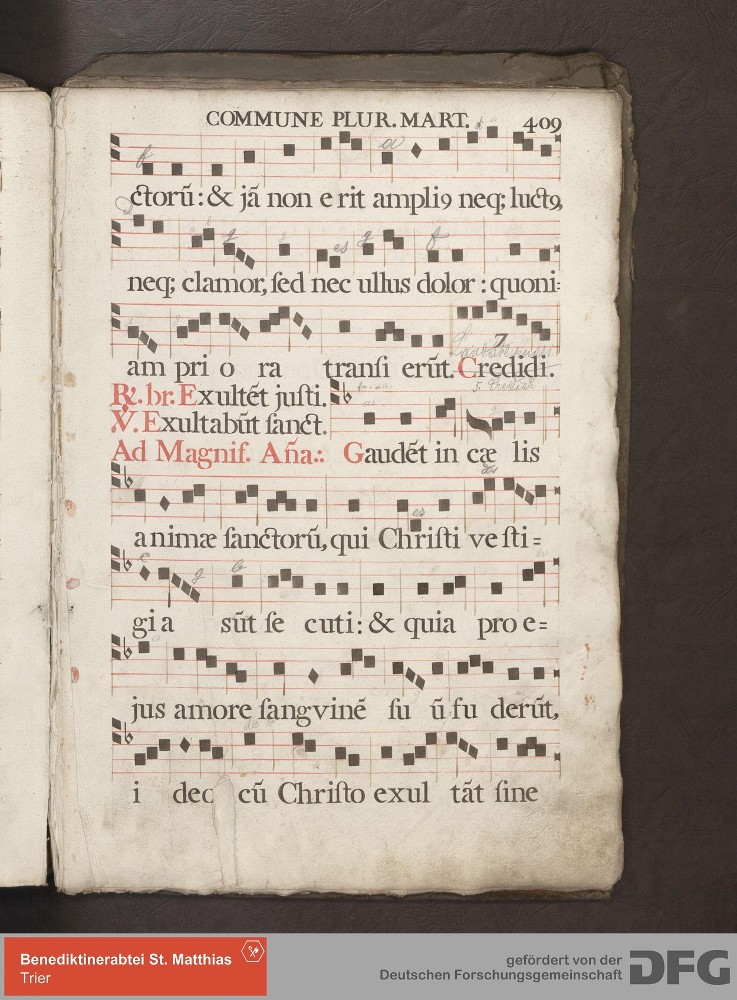 COMMUNE PLUR. MART. 409
ctorū: & jā non e rit ampliꝰ neq; luctꝰ,
neq; clamor, ſed nec ullus dolor: quoni=
am pri o ra tranſi erūt. Credidi.
℟. br. Exultēt juſti.
℣. Exultabūt ſanct.
Ad Magnif. Aña.: Gaudēt in cæ lis
animæ ſanctorū, qui Chriſti ve ſti=
gi a sūt ſe cuti: & quia pro e=
jus amore ſangvinē fu ū fu derūt,
i deo cū Chriſto exul tāt ſine
Benediktinerabtei St. Matthias
Trier
gefördert von der
Deutschen Forschungsgemeinschaft
DFG